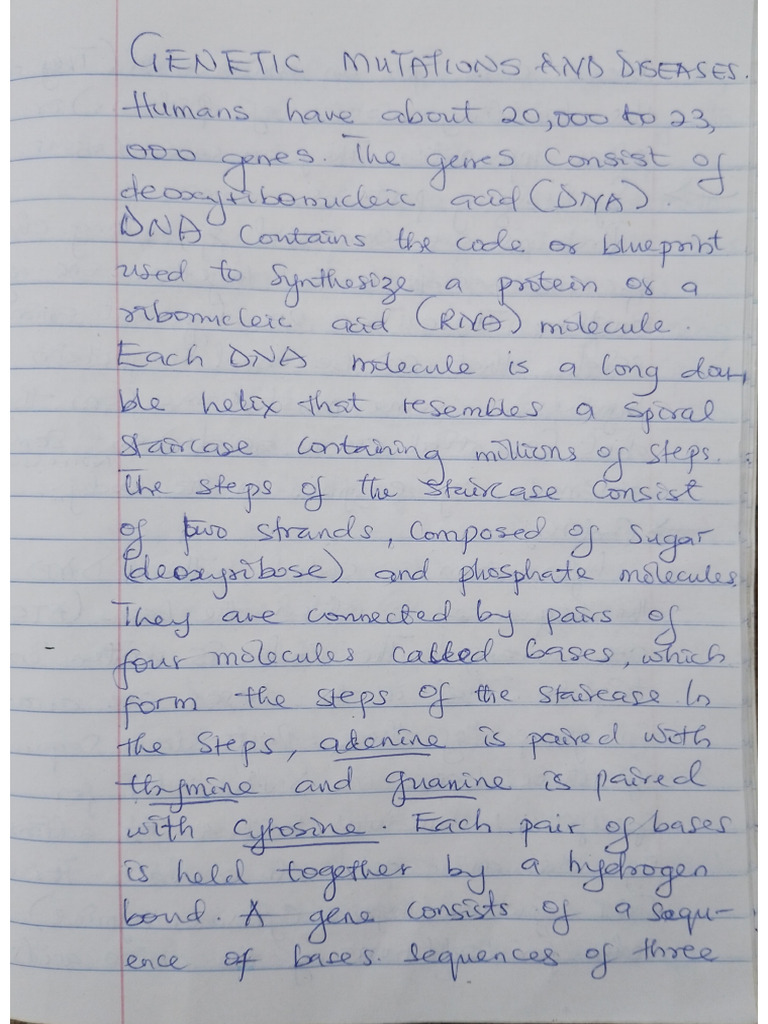 GENETIC MUTATIONS AND DISEASES.
Humans have about 20,000 to 23,
000 genes. The genes consist of
deoxyribonucleic acid (DNA).
DNA contains the code or blueprint
used to synthesize a protein or a
ribonucleic acid (RNA) molecule.
Each DNA molecule is a long dou,
ble helix that resembles a spiral
staircase containing millions of steps.
The steps of the staircase consist
of two strands, composed of sugar
(deoxyribose) and phosphate molecules.
They are connected by pairs of
four molecules called bases, which
form the steps of the staircase. In
the steps, adenine is paired with
thymine and guanine is paired
with cytosine. Each pair of bases
is held together by a hydrogen
bond. A gene consists of a sequ-
ence of bases. Sequences of three